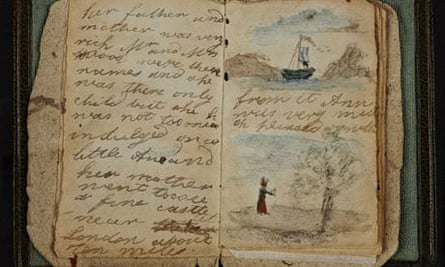 her father and
mother was very
rich Mr and Mrs
Wood were there
names and she
was there only
child but she
was not too mu
indulged once
little Ann and
her mother
went to see
a fine castle
near
London about
ten miles
from it Ann
was very mu
ch pleased with